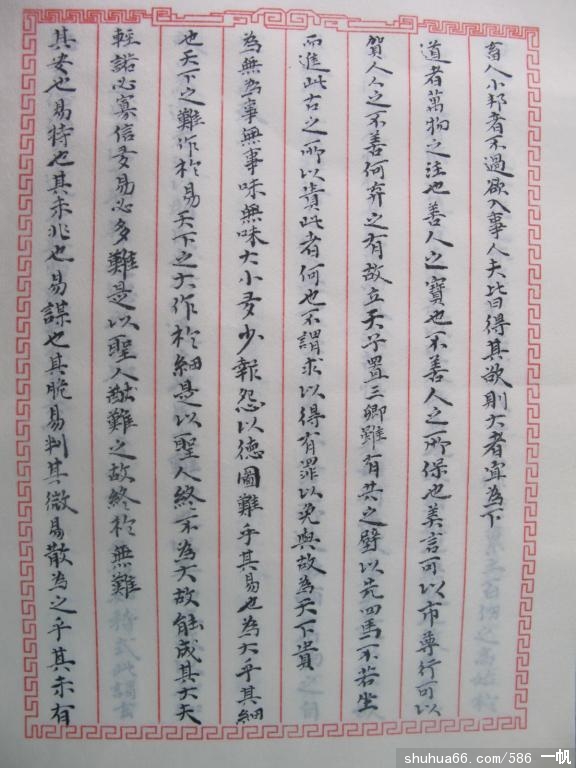 畜人小邦者不過欲入事人夫皆得其欲則大者宜為下
道者萬物之注也善人之寶也不善人之所保也美言可以市尊行可以
賀人人之不善何弃之有故立天子置三卿雖有共之璧以先四馬不若坐
而進此古之所以貴此者何也不謂求以得有罪以免與故為天下貴
為無為事無事味無味大小多少報怨以德圖難乎其易也為大乎其細
也天下之難作於易天下之大作於細是以聖人終不為大故能成其大夫
輕諾必寡信多易必多難是以聖人猷難之故終於無難
其安也易持也其未兆也易謀也其脆易判其微易散為之乎其未有
shuhua66.com/586 一帆